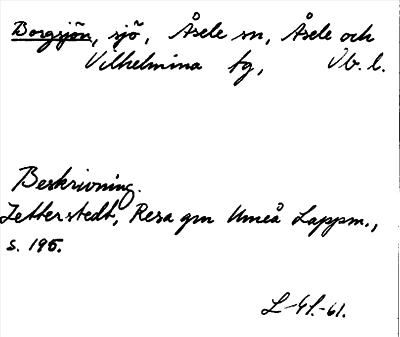 Borgsjön, sjö, Åsele sn, Åsele och
Vilhelmina tg, Vb. l.
Beskrivning.
Zetterstedt, Resa gm Umeå Lappm.,
s. 195.
L-Hl.-61.